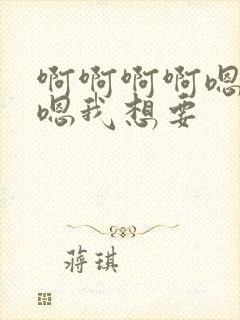 啊啊啊啊嗯
嗯我想要
蒋琪